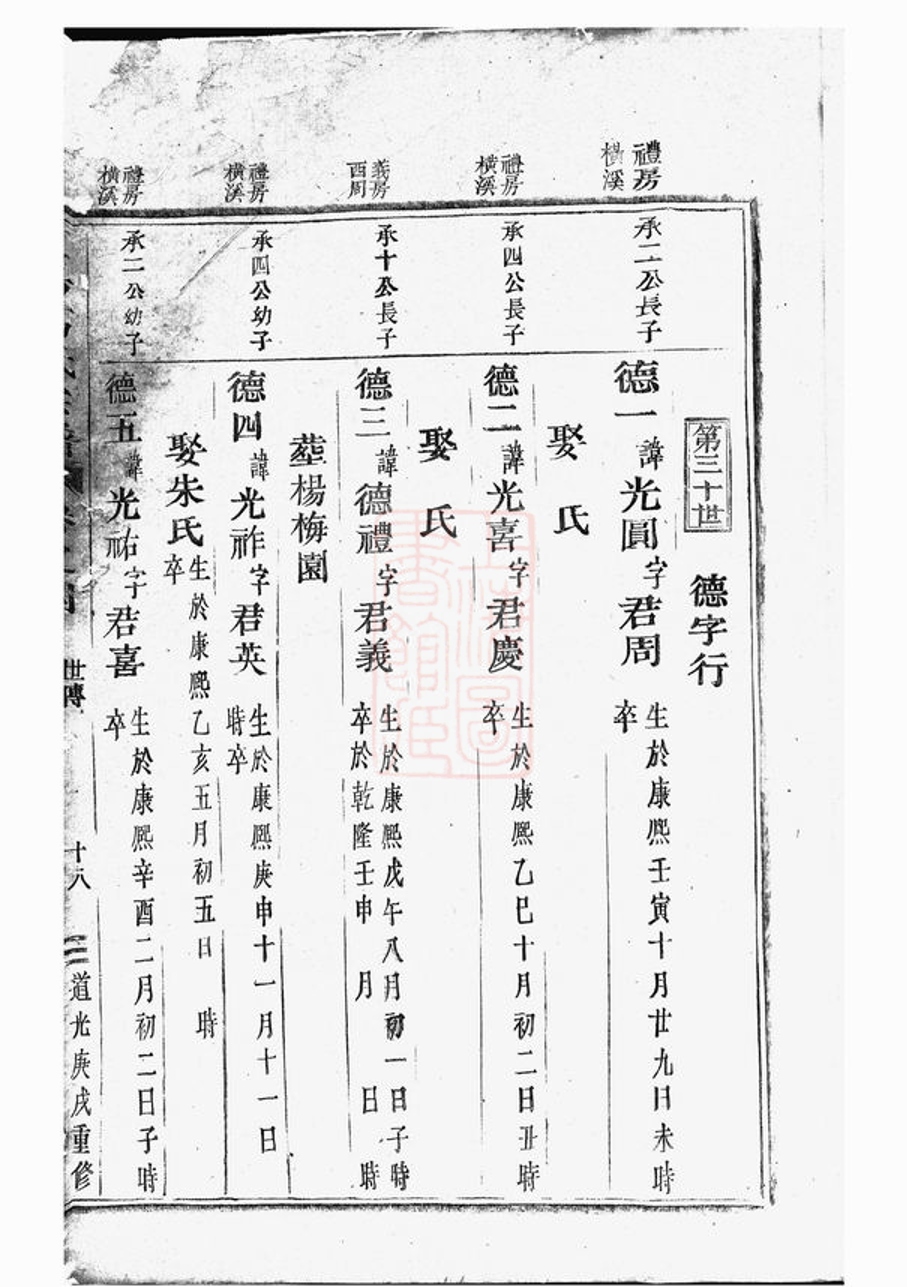 第三十世
德字行
禮房
橫溪
承二公長子
德一諱光圓字君周
生於康熙壬寅十月廿九日未時
卒
娶　氏
禮房
橫溪
承四公長子
德二諱光喜字君慶
生於康熙乙巳十月初二日丑時
卒
娶　氏
義房
西周
承十公長子
德三諱德禮字君義
生於康熙戊午八月初一日子時
卒於乾隆壬申　月　日　時
葬楊梅園
禮房
橫溪
承四公幼子
德四諱光祚字君英
生於康熙庚申十一月十一日
時卒
娶朱氏
生於康熙乙亥五月初五日　時
卒
禮房
橫溪
承二公幼子
德五諱光祐字君喜
生於康熙辛酉二月初二日子時
卒
世傳
十八
道光庚戌重修